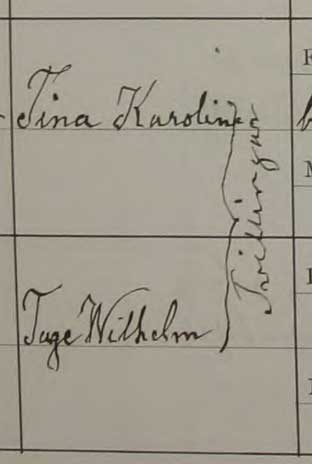 Tina Karoline
Tvillingar
Tage Wilhelm